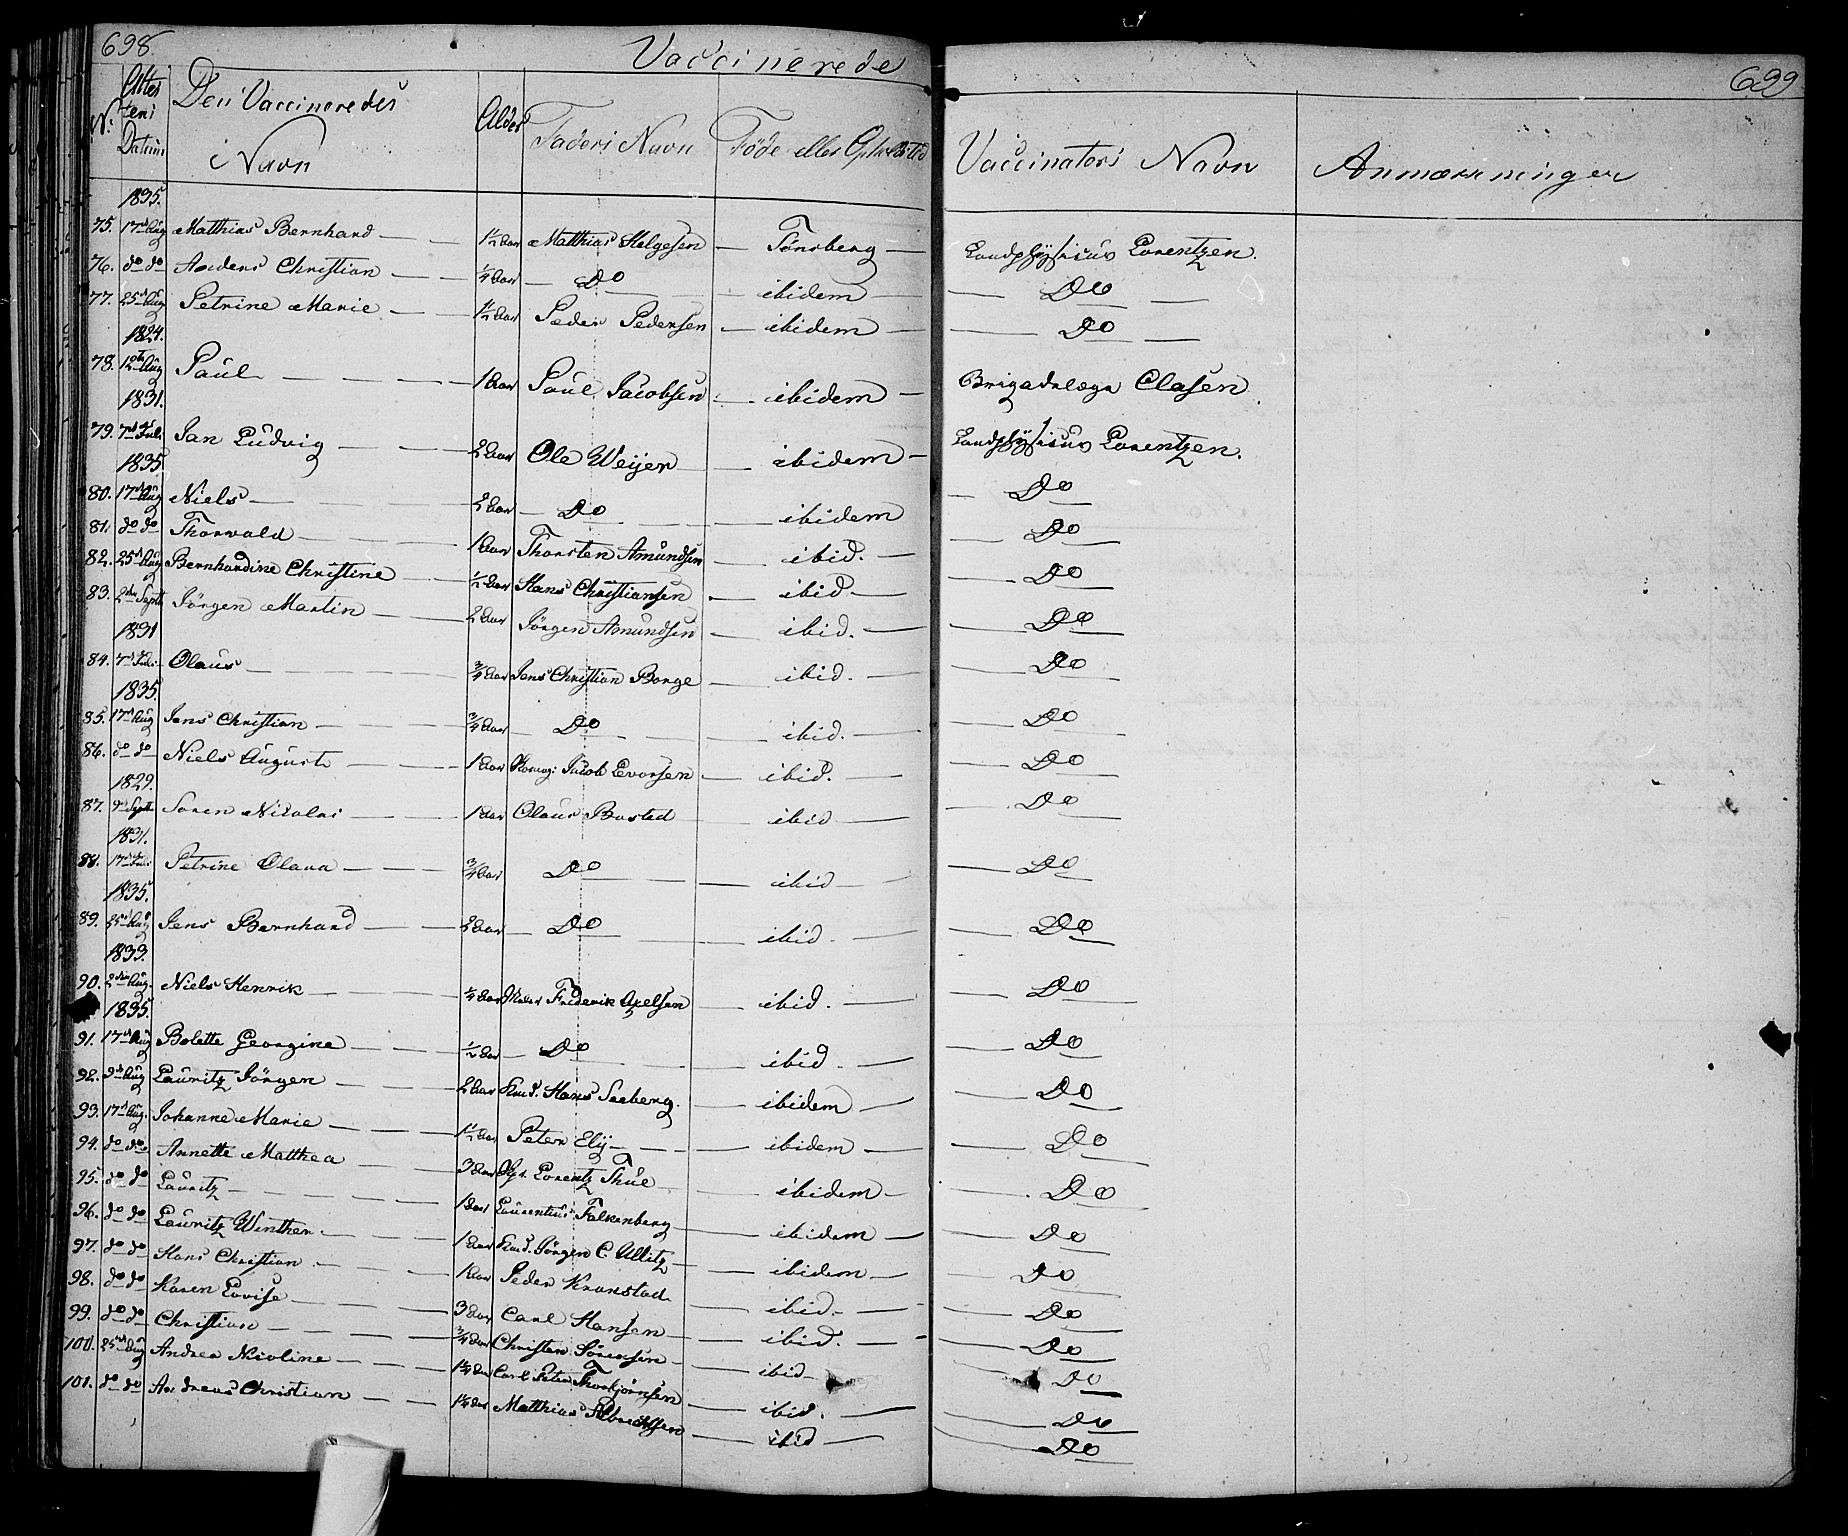 698
Vaccinerede
699
No Attestens Datum Den Vaccineredes Navn Alder Faders Navn Føde eller Opholdsted Vaccinators Navn Anmærkninger
1835.
75. 17de Aug Matthias Bernhard 1½ Aar Matthias Helgesen Tønsberg Landphysicus Lorentzen.
76. do do Anders Christian ¼ Aar Do ibidem Do
77. 25de Aug Petrine Marie 1½ Aar Peder Pedersen ibidem Do
1824.
78. 12te Aug Paul 1 Aar Paul Jacobsen ibidem Brigadelæge Clasen.
1831.
79. 7de Juli Jan Ludvig 2 Aar Ole Weyer ibidem Landphysicus Lorentzen.
1835
80. 17de Aug Niels 2 Aar Do ibidem Do
81. do do Thorvald 1 Aar Thorsten Amundsen ibid. Do
82. 25de Aug Bernhardine Christine ½ Aar Hans Christiansen ibid. Do
83. 2den Septb Jörgen Martin 2 Aar Jörgen Amundsen ibid. Do
1831
84. 7de Juli Olaus ¾ Aar Jens Christian Borge ibid. Do
1835.
85. 17de Aug Jens Christian ¾ Aar Do ibid. Do
86. do do Niels August 1 Aar Jacob Evorsen ibid. Do
1829.
87. 9de Septb Soren Nicolai 1 Aar Olaus Bosted ibid Do
1831.
88. 17de Juli Petrine Olava ¾ Aar Do ibid Do
1835.
89. 25de Aug Jens Bernhard 2 Aar Do ibid. Do
1833.
90. 2den Aug. Niels Henrik ¼ Aar Frederik Axelsen ibid. Do
1835.
91. 17de Aug Bolette Georgine ½ Aar Do ibid. Do
92. 9de Aug Lauritz Jörgen 2 Aar Hans Seeberg. ibidem Do
93. 17de Aug. Johanne Marie 1½ Aar Peter Ely ibidem Do
94. do do Annette Matthea 3 Aar Lorentz Thue ibidem Do
95. do do Lauritz 1 Aar Laurentius Falkenberg ibidem Do
96. do do Lauritz Winther 1 Aar Jörgen C. Ullitz ibidem Do
97. do do Hans Christian 1 Aar Peder Kranstad ibid. Do
98. do do Karen Lovise 3 Aar Carl Hansen ibid. Do
99. do do Christian ¾ Aar Christen Sörensen ibid Do
100. 25de Aug Andrea Nicoline Aar Carl Peter Thorbjörnsen ibid. Do
101. do do Andreas Christian Aar Matthias Albrechtsen ibid Do